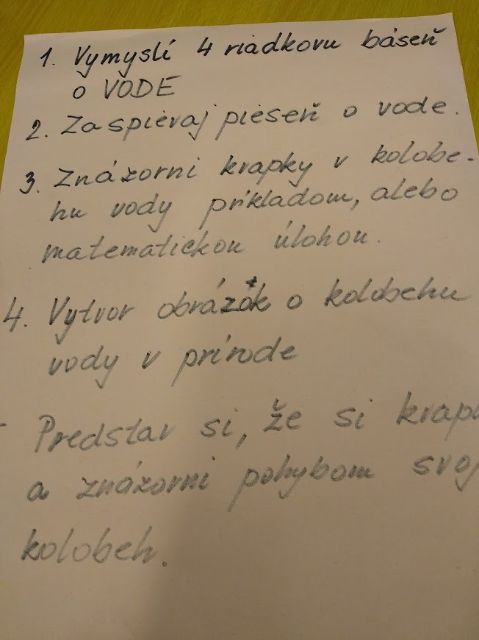 1. Vymyslí 4 riadkovu báseň
o VODE
2. Zaspievaj pieseň o vode.
3. Znázorni krapky v kolobe-
hu vody príkladom, alebo
matematickou úlohou.
4. Vytvor obrázok o kolobehu
vody v prírode
- Predstav si, že si krapk
a znázorni pohybom svoj
kolobeh.